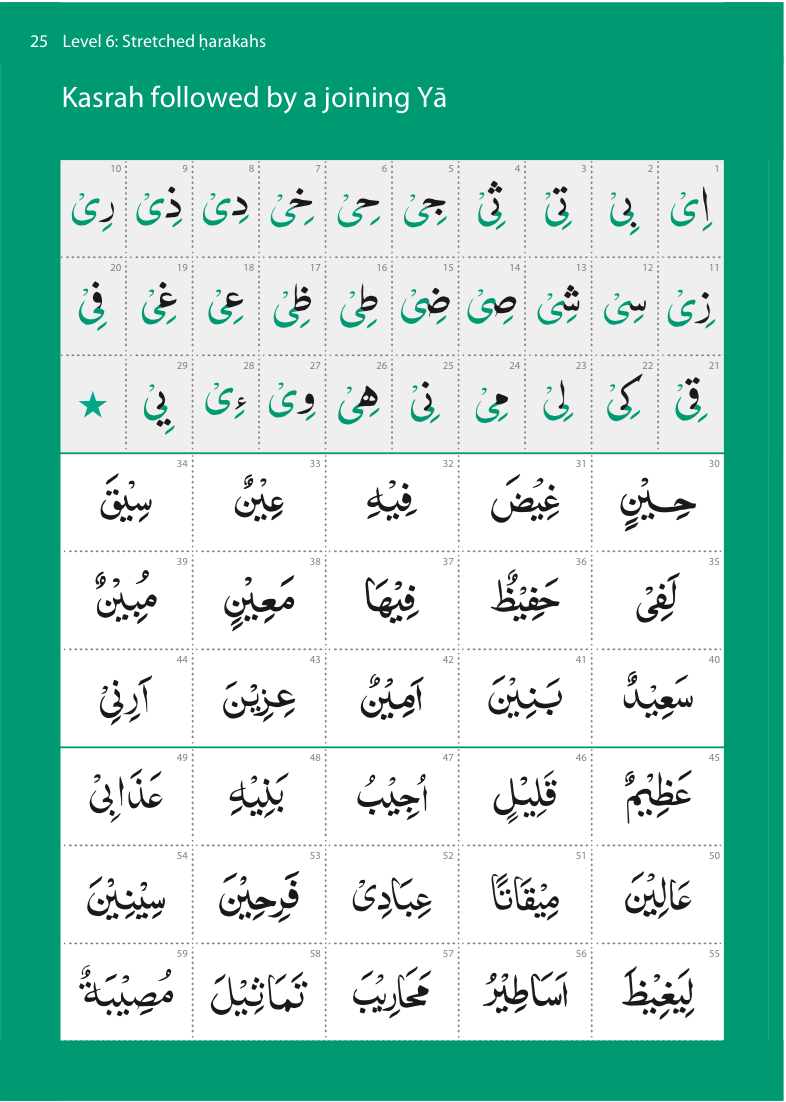 25 Level 6: Stretched ḥarakahs
Kasrah followed by a joining Yā
1 2 3 4 5 6 7 8 9 10
اِىْ بِىْ تِىْ ثِىْ جِىْ حِىْ خِىْ دِىْ ذِىْ رِىْ
11 12 13 14 15 16 17 18 19 20
زِىْ سِىْ شِىْ صِىْ ضِىْ طِىْ ظِىْ عِىْ غِىْ فِىْ
21 22 23 24 25 26 27 28 29
قِىْ كِىْ لِىْ مِىْ نِىْ هِىْ وِىْ ءِىْ يِىْ ★
30 31 32 33 34
حِيْنٍ غِيْضَ فِيْهِ عِيْنٌ سِيْقَ
35 36 37 38 39
لَفِىْ حَفِيْظٌ فِيْهَا مَعِيْنٍ مُبِيْنٌ
40 41 42 43 44
سَعِيْدٌ بَنِيْنَ اَمِيْنٌ عِزِيْنَ اَرِنِىْ
45 46 47 48 49
عَظِيْمٌ قَلِيْلٍ اُجِيْبُ بَنِيْهِ عَذَابِىْ
50 51 52 53 54
عَالِيْنَ مِيْقَاتًا عِبَادِىْ فَرِحِيْنَ سِيْنِيْنَ
55 56 57 58 59
لِيَغِيْظَ اَسَاطِيْرُ مَحَارِيْبَ تَمَاثِيْلَ مُصِيْبَةٌ